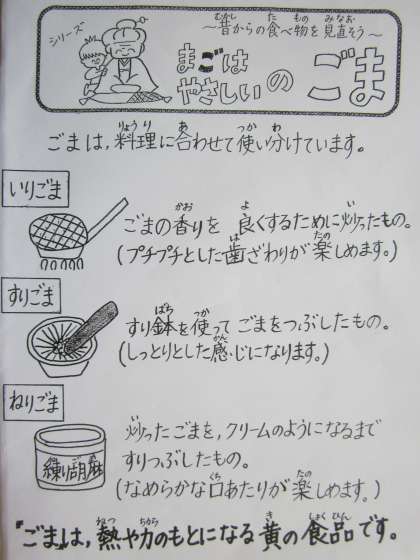 シリーズ
～昔からの食べ物を見直そう～
まごは
やさしいの
ごま
ごまは,料理に合わせて使い分けています。
いりごま
ごまの香りを良くするために炒ったもの。
(プチプチとした歯ざわりが楽しめます。)
すりごま
すり鉢を使ってごまをつぶしたもの。
(しっとりとした感じになります。)
ねりごま
練り胡麻
炒ったごまを,クリームのようになるまで
すりつぶしたもの。
(なめらかな口あたりが楽しめます。)
「ごま」は,熱や力のもとになる黄の食品です。